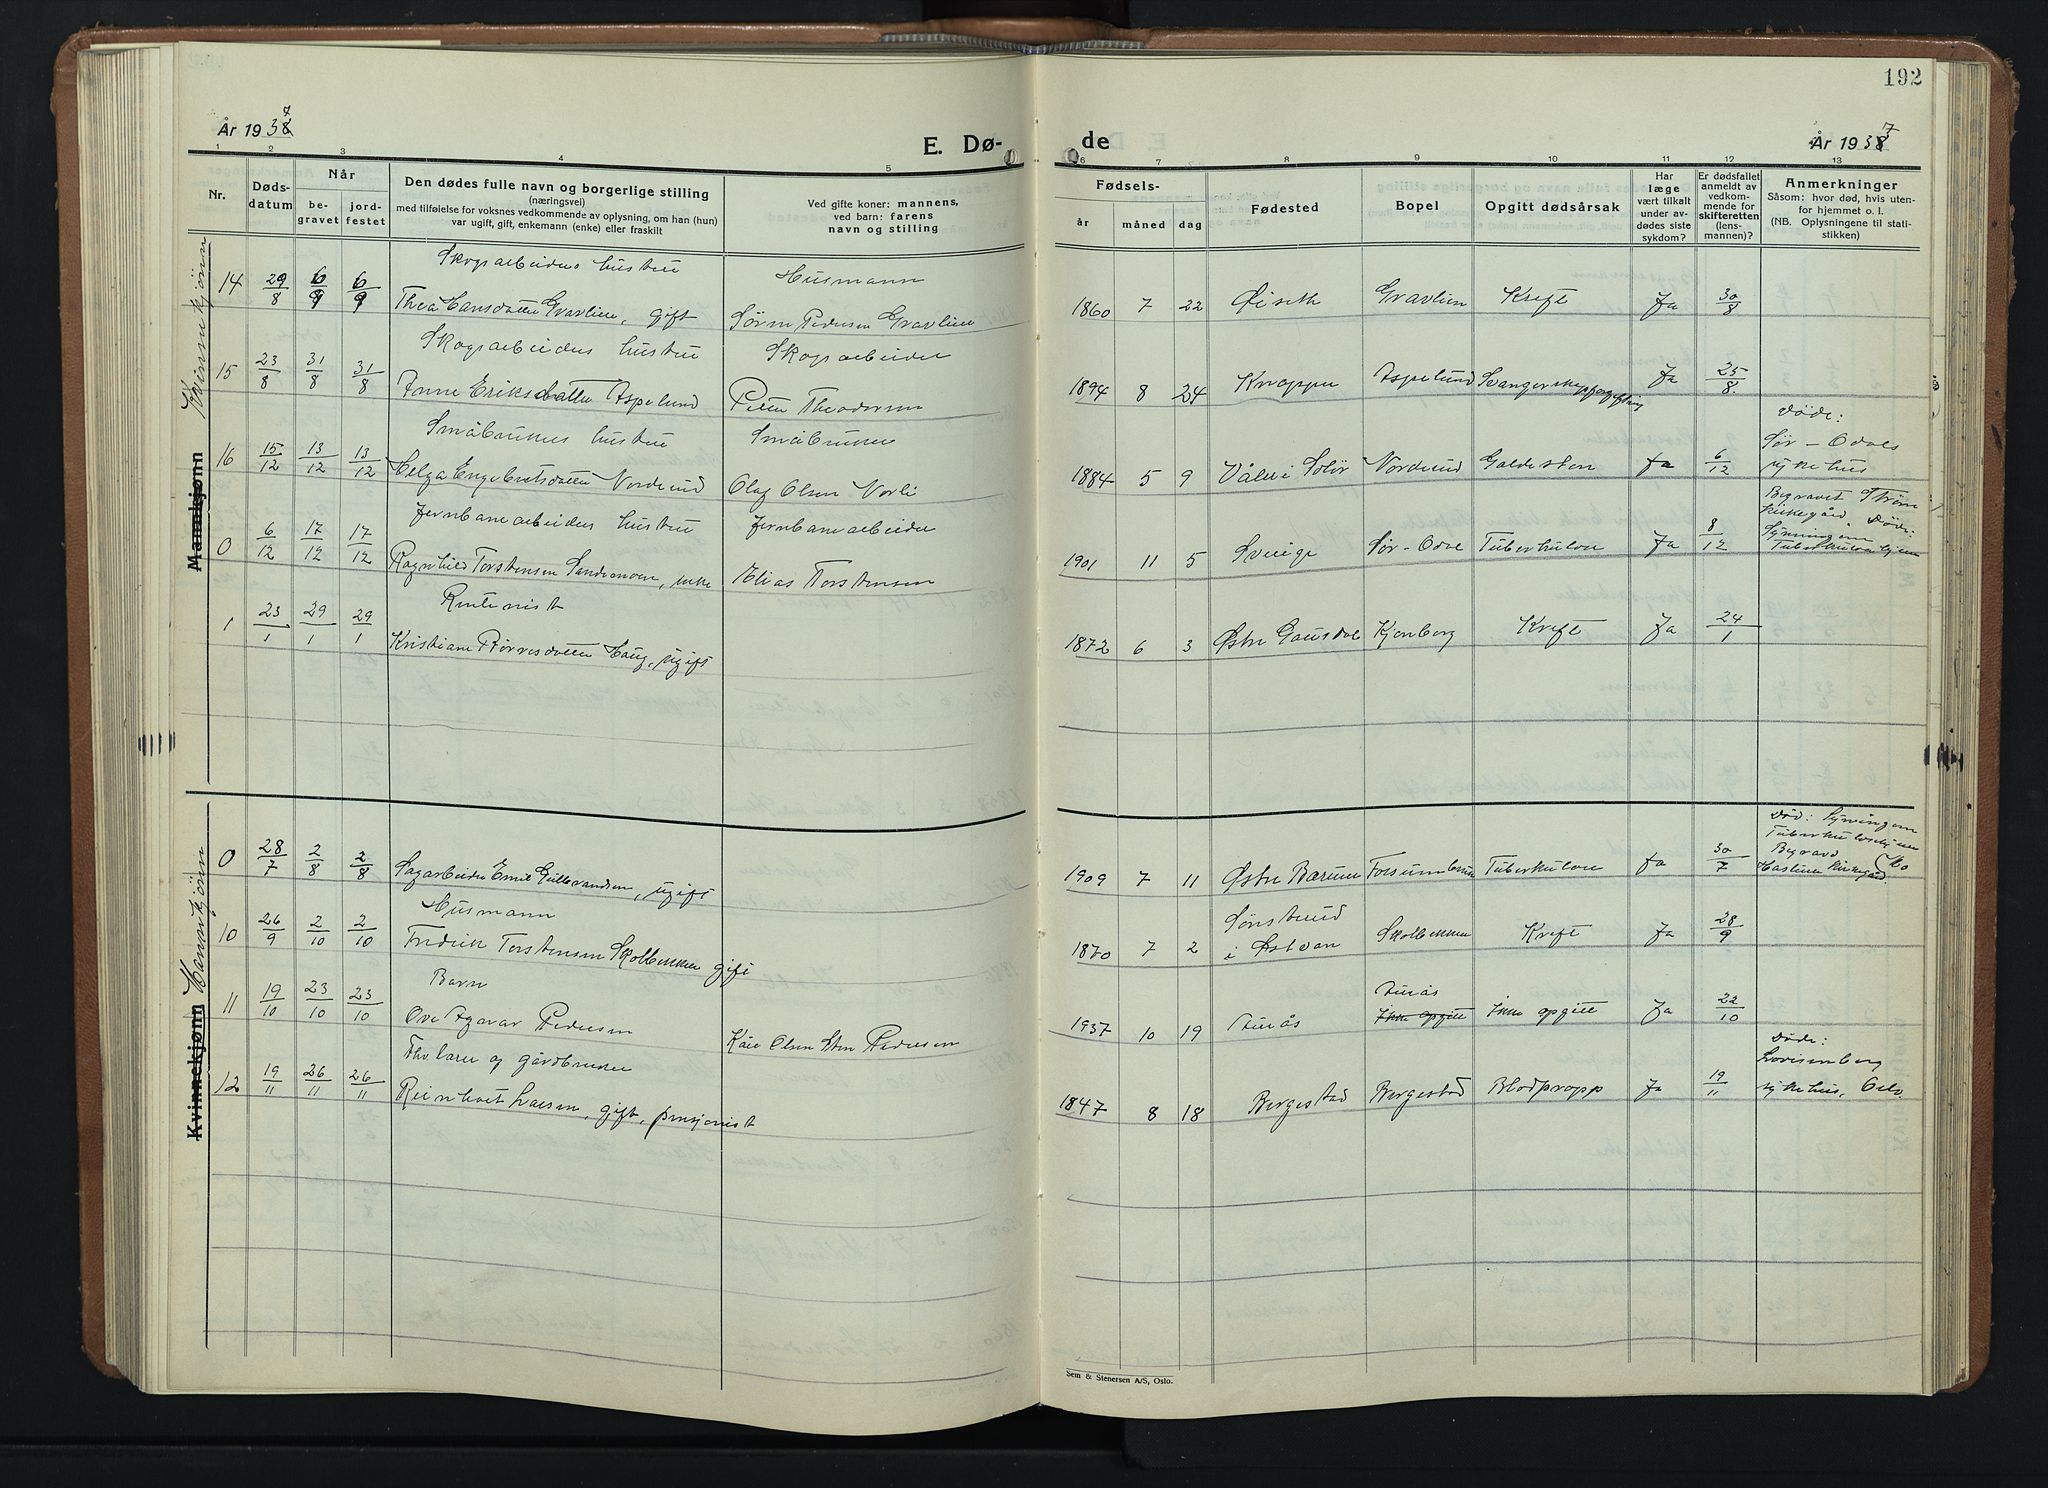 192
År 1938 7
E. Dø-
de
År 1938 7
1 2 3 4 5 6 7 8 9 10 11 12 13
Nr.
Døds-
datum
Når
be-
gravet
jord-
festet
Den dødes fulle navn og borgerlige stilling
(næringsvei)
med tilføielse for voksnes vedkommende av oplysning, om han (hun)
var ugift, gift, enkemann (enke) eller fraskilt
Ved gifte koner: mannens,
ved barn: farens
navn og stilling
Fødsels-
år
måned
dag
Fødested
Bopel
Opgitt dødsårsak
Har
læge
vært tilkalt
under av-
dødes siste
sykdom?
Er dødsfallet
anmeldt av
vedkom-
mende for
skifteretten
(lens-
mannen)?
Anmerkninger
Såsom: hvor død, hvis uten-
for hjemmet o. l.
(NB. Oplysningene til stati-
stikken)
Mannkjønn Kvinnekjønn
Skogsarbeiders hustru Husmann
14 29/8 6/9 6/9 Thea Hansdatter Gravlien, gift Søren Pedersen Gravlien 1860 7 22 Øiseth Gravlien Kreft Ja 30/8
Skogsarbeiders hustru Skogsarbeider
15 23/8 31/8 31/8 Anne Eriksdatter Aspelund Petter Theodorsen 1894 8 24 Knapper Aspelund Svangerskapsforgiftning Ja 25/8
Småbrukers hustru Småbruker
16 15/12 13/12 13/12 Helga Engebretsdatter Nordlund Olaf Olsen Norli 1884 5 9 Våler i Solør Nordlund Galdesten Ja 6/12
Døde:
Sør-Odals
sykehus
Jernbanearbeiders hustru Jernbanearbeider
0 6/12 17/12 17/12 Ragnhild Torstensen Sandemoen, enke Elias Torstensen 1901 11 5 Sverige Sør-Odal Tuberkulose Ja 8/12
Begravet Strøm
kirkegård. Døde:
Tuberkulosehjem
Rentenist
1 23/1 29/1 29/1 Kristiane Børresdatter Haug, ugift 1872 6 3 Østre Gausdal Kjenberg Kreft Ja 24/1
Kvinnekjønn Mannkjønn
0 28/7 2/8 2/8 Sagarbeider Emil Gulbrandsen, ugift 1909 7 11 Østre Bærum Fossum bruk Tuberkulose Ja 30/7
Død:
Tuberkulosehjem
Begravd
Haslum kirkegård.
Husmann
10 26/9 2/10 2/10 Fredrik Torstensen Skolbekken gift 1870 7 2 Sønstrud
i Åstvan Skolbekken Kreft Ja 28/9
Barn
11 19/10 23/10 23/10 Ove Agavar Pedersen Kåre Olsen Sten Pedersen 1937 10 19 Furås Ikke opgitt Furås Ikke opgitt Ja 22/10
Fhv. lærer og gårdbruker
12 19/11 26/11 26/11 Reinholt Larsen, gift, pensjonist 1847 8 18 Bergestad Bergestad Blodpropp Ja 19/11
Døde:
Lovisenberg
sykehus, Oslo.
Sem & Stenersen A/S, Oslo.